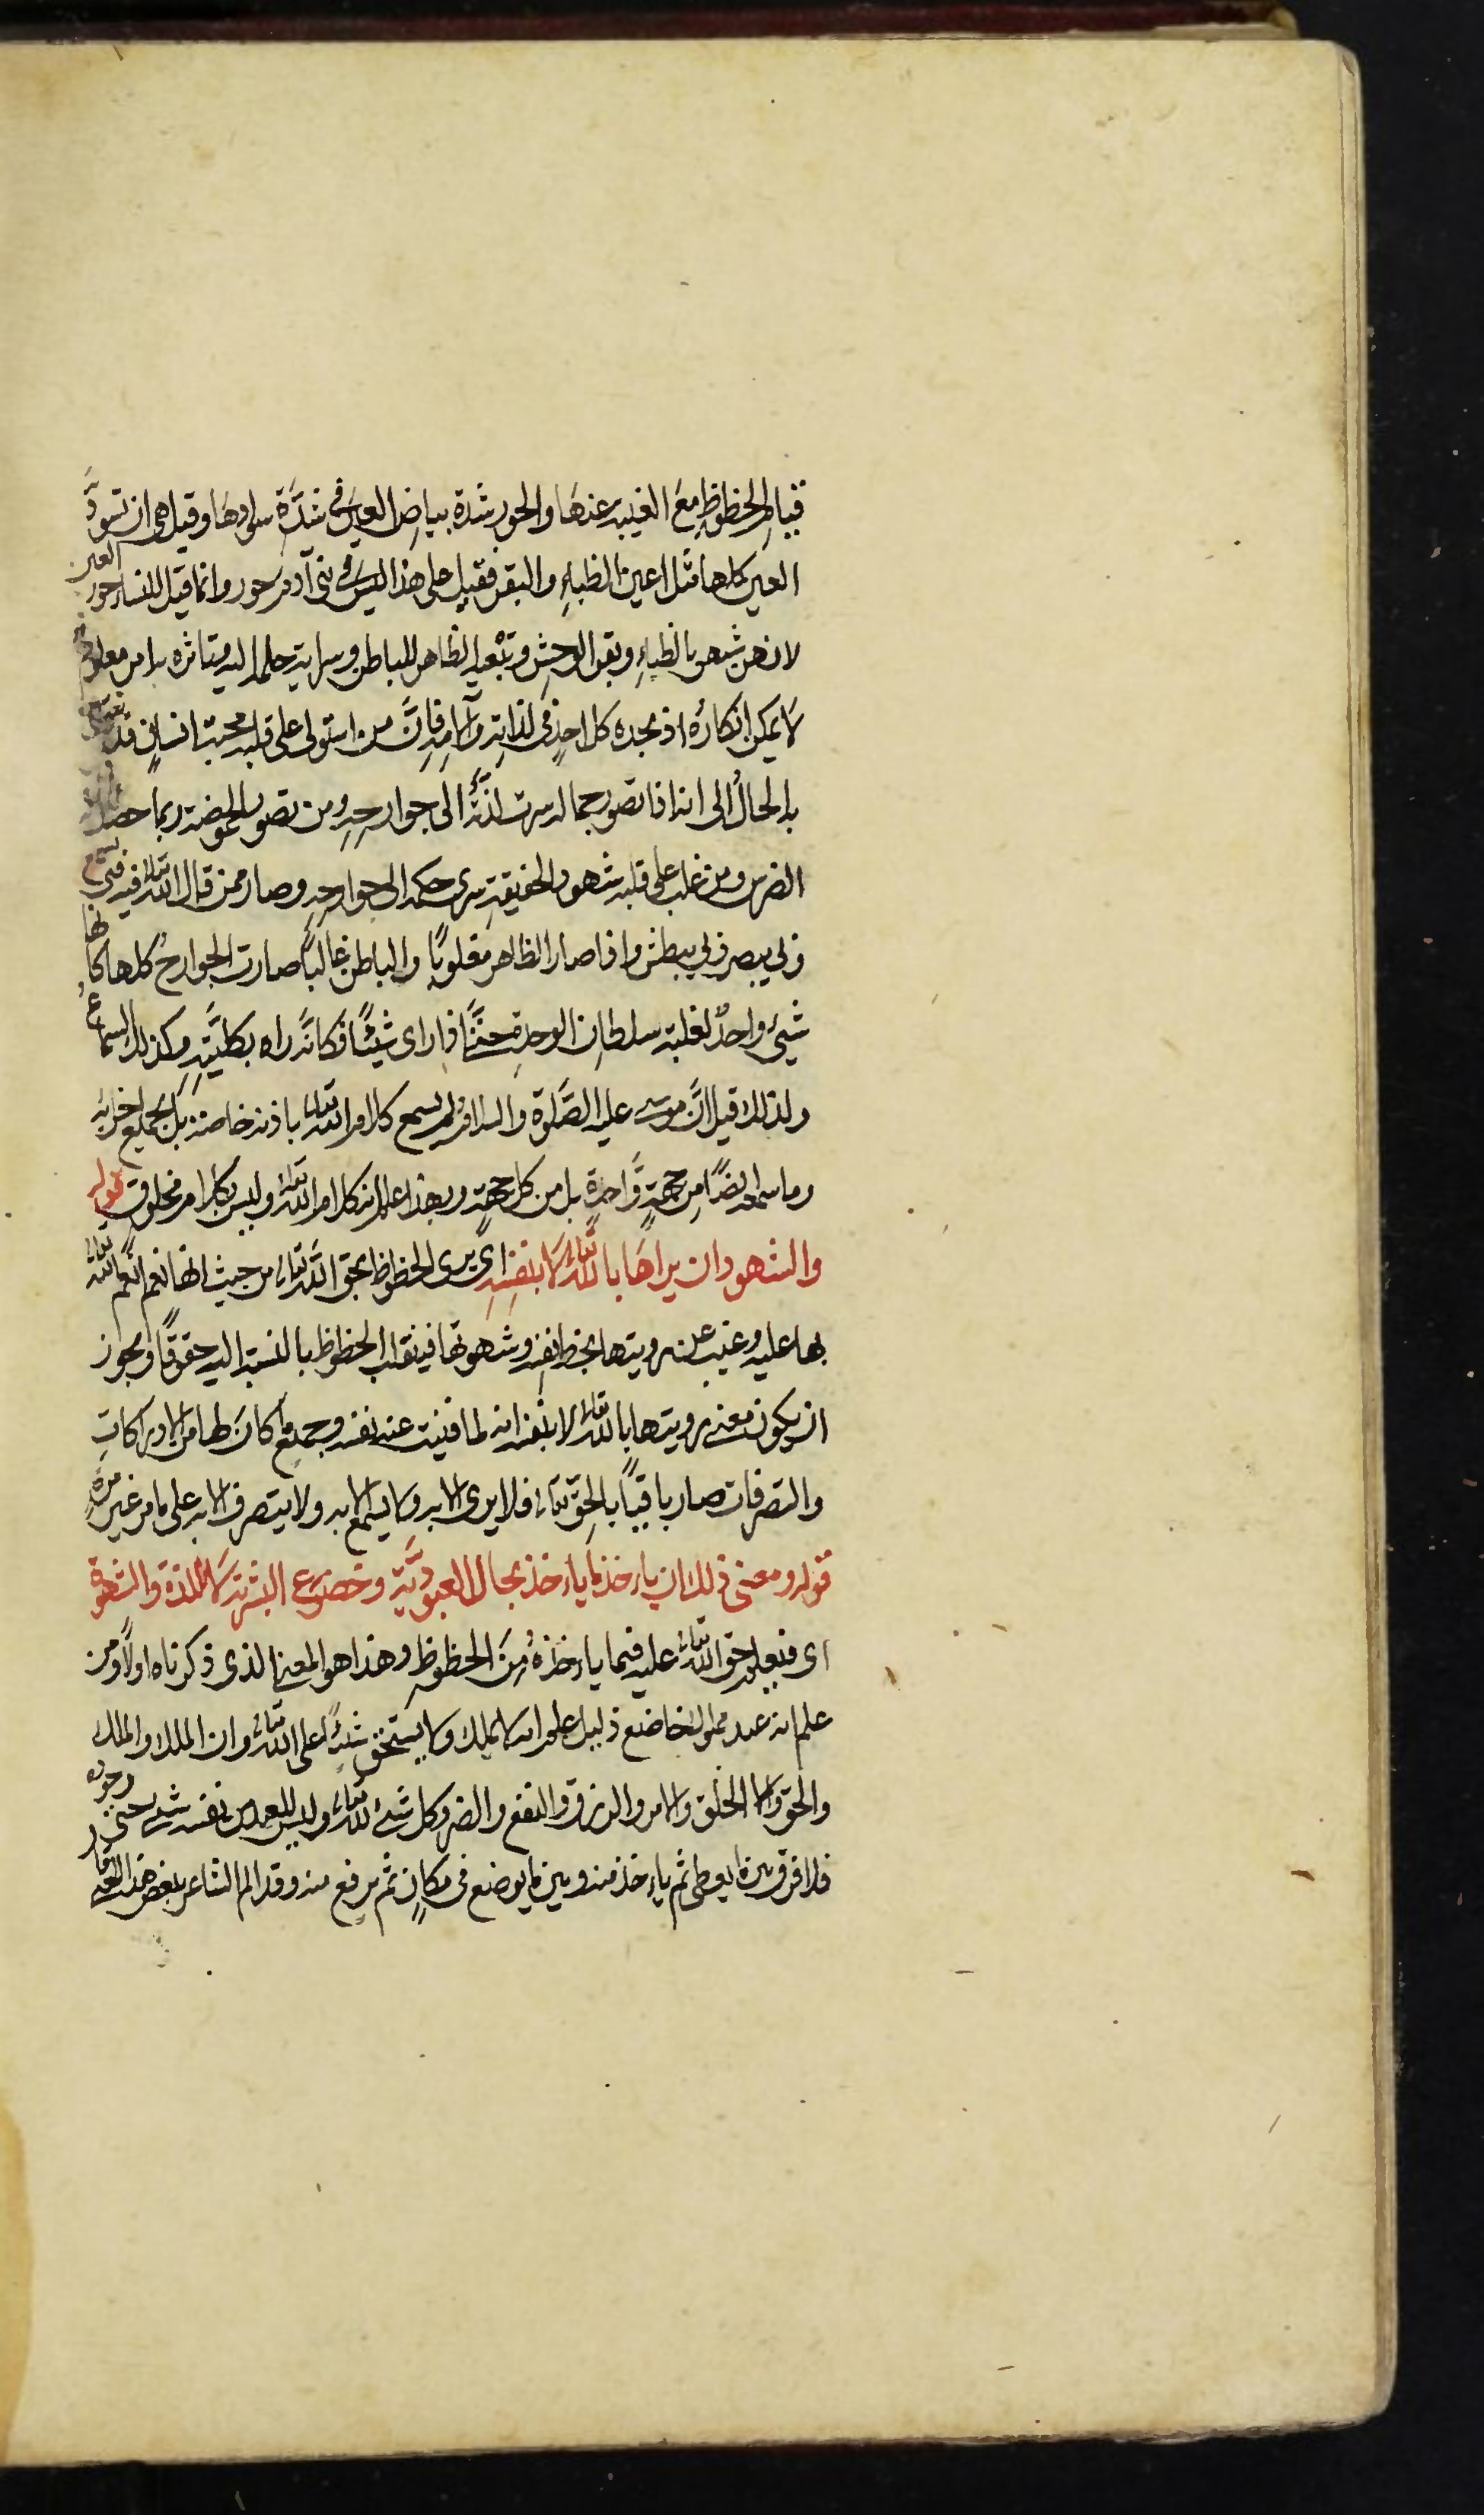 قيام الحظوظ مع الغيبة عنها والحور شدة بياض العين في شدَّة سوادها وقيل هي ان تسودَّ
العين كلها مثل اعين الظباء والبقر فقيل على هذا ليس في بني آدم حور وانما قيل للنساء حور العين
لانهن شبهن بالظباء وبقر الوحش وتبعية الظاهر للباطن وسراية حكمه اليه وتاثره به امر معلوم
لا يمكن انكاره اذ يجده كل احد في لذاته وآلامه فانَّ من استولى على قلبه محبة انسان قد
به الحال الى انه اذا تصور جماله سرت لذَّته الى جوارحه ومن تصور الحموضة ربما حصل له
الضرس ومن غلب على قلبه شهود الحقيقة سرى حكمه الى جوارحه وصار ممن قال الله تعالى فيه فبي يسمع
وبي يبصر وبي يبطش واذا صار الظاهر مغلوبًا والباطن غالبًا صارت الجوارح كلها كانها
شيء واحد لغلبة سلطان الوحدة حتى اذا راى شيئًا فكانَّه راه بكليَّته وكذلك السماع
ولذلك قيل انَّ موسى عليه الصَّلوة والسلام لم يسمع كلام الله تعالى باذنه خاصة بل بجميع اجزائه
وما سمعه ايضًا من جهةٍ وَّاحدة بل من كل جهةٍ وبهذا علم انه كلام الله تعالى وليس بكلام مخلوق قوله
والشهود ان يراها بالله تعالى لا بنفسه اي يرى الحظوظ بحق الله تعالى من حيث انها نعم انعم الله تعالى
بها عليه وغيب عن رويتها بحظ نفسه وشهوتها فينقلب الحظوظ بالنسبة اليه حقوقًا ويجوز
ان يكون معنى رويتها بالله تعالى لا بنفسه انه لما فنيت عنه نفسه وجميع ما كان لها من الادراكات
والتصرفات صار باقيًا بالحق تعالى فلا يرى الا به ولا يسمع الا به ولا يتصرف الا به على ما مر غير مرة
قوله ومعنى ذلك ان ياخذ ما ياخذ بحال العبوديَّة وخضوع البشرية لا للذة والشهوة
اي فيعلم حق الله تعالى عليه فيما ياخذه من الحظوظ وهذا هو المعنى الذي ذكرناه اولًا ومن
علم انه عبد مملوك خاضع ذليل علم انه لا يملك ولا يستحق شيئًا على الله تعالى وان الملك والملك
والحق والخلق والامر والرزق والنفع والضر وكل شيء لله تعالى وليس للعبد من نفسه شيء حتى وجوده
فلا فرق بين ما يعطى ثم ياخذ منه وبين ما يوضع في مكان ثم يرفع منه وقد الم الشاعر ببعض هذا فقال